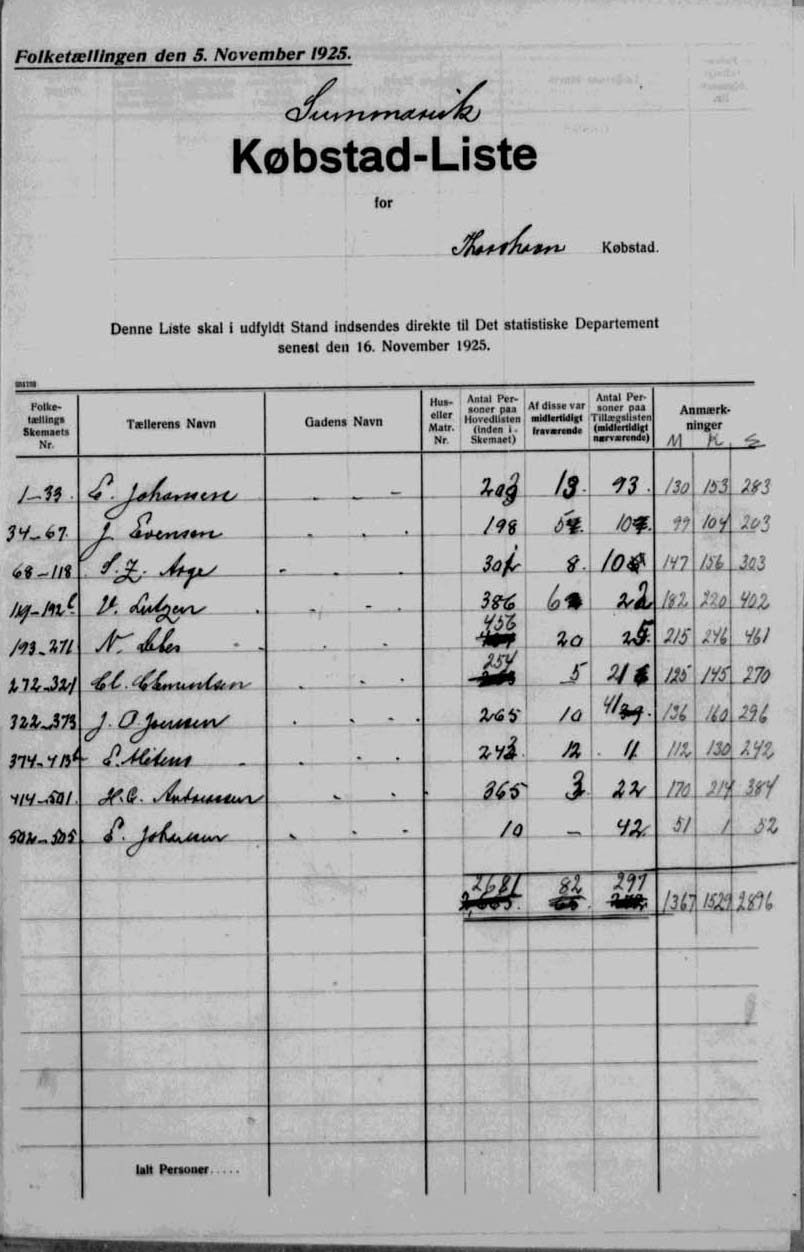 Folketællingen den 5. November 1925.
Summarisk
Købstad-Liste
for
Thorshavn Købstad.
Denne Liste skal i udfyldt Stand indsendes direkte til Det statistiske Departement
senest den 16. November 1925.
Folketællings Skemaets Nr. Tællerens Navn Gadens Navn Hus- eller Matr. Nr. Antal Personer paa Hovedlisten (inden i Skemaet) Af disse var midlertidigt fraværende Antal Personer paa Tillægslisten (midlertidigt nærværende) Anmærkninger
M K. S
1-33. E. Johansen - - - 203 13. 93. 130 153 283
34-67. J. Evensen - - - 198 5 10 99 104 203
68-118 S. Z. Arge - - - 301 8. 10 147 156 303
V. Lützen - - - 386 6 22 182 220 402
193-271 N. - - 456 20 25 215 246 461
272-321 Cl. Clementsen - - - 254 5 21 125 145 270
322-373 J. O. Joensen - - - 265 10 41 136 160 296
374-413 E. Mitens - - - 243 12. 11 112 130 242
414-501. H.C. - - - 365 3. 22 170 214 384
502-505. E. Johansen - - - 10 - 42. 51 1 52
2681 82 297 1367 1529 2896
Ialt Personer.....